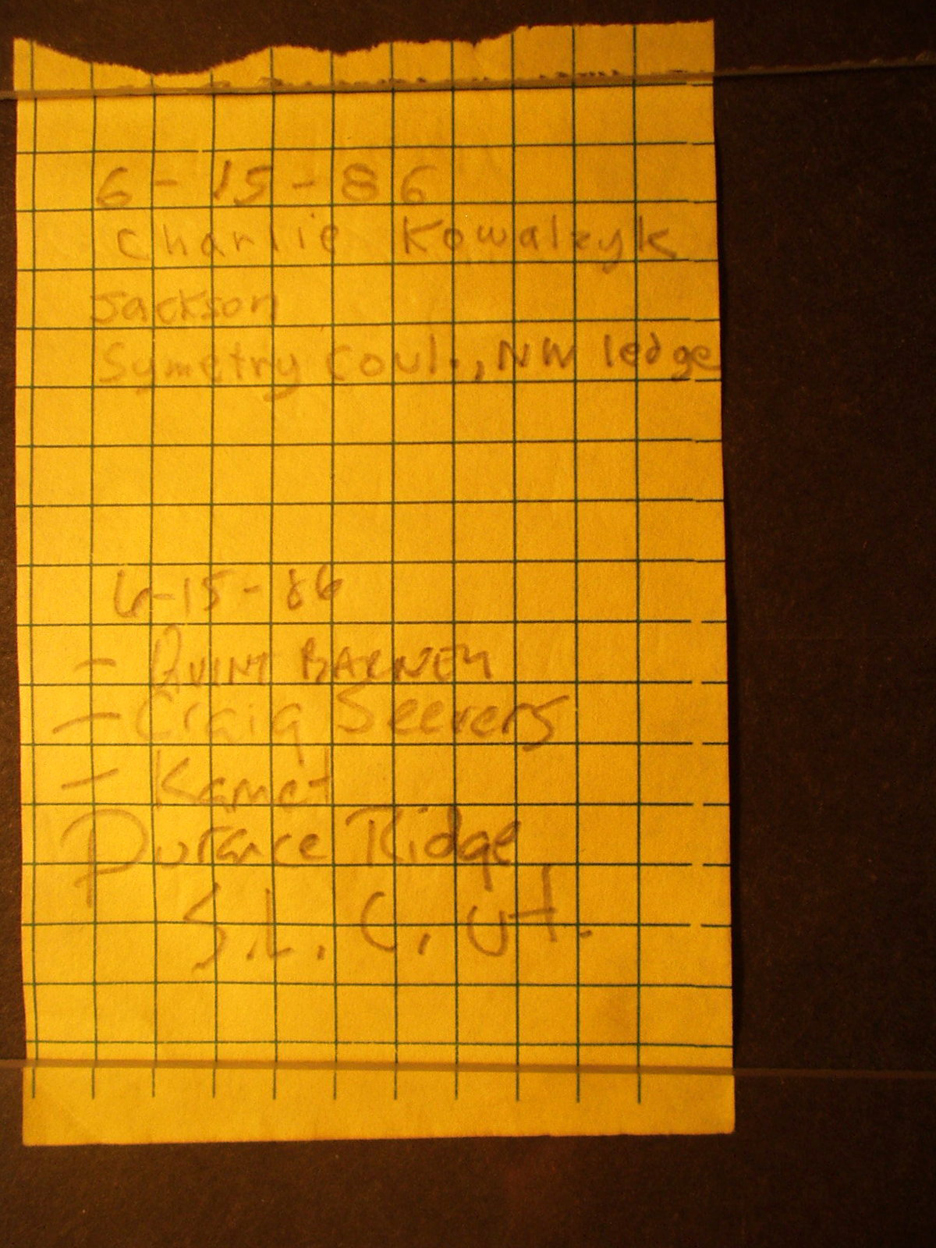 6-15-86
Charlie Kowalzyk
Jackson
Symetry Coul., NW ledge
6-15-86
- QUINT BARNEY
- Craig Seevers
- Kamet
Durance Ridge
S.L.C. Ut.